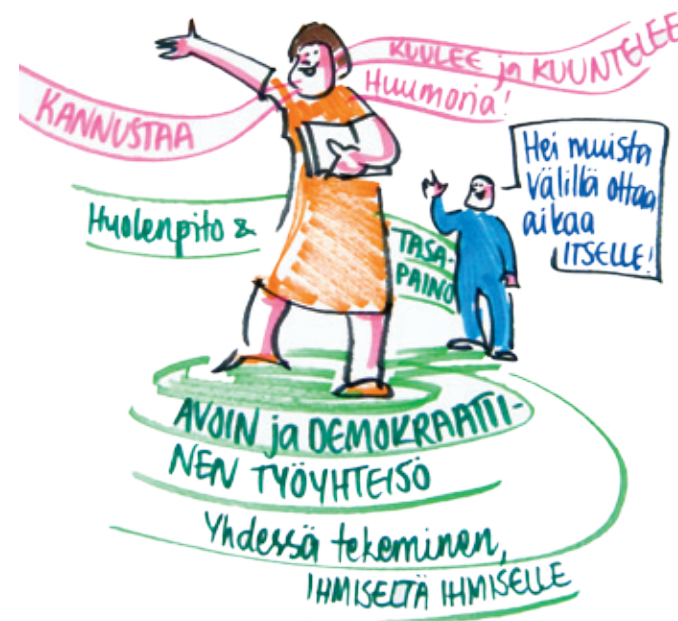 KUULEE ja KUUNTELEE
Huumoria!
KANNUSTAA
Hei muista
välillä ottaa
aikaa
ITSELLE!
Huolenpito &
TASA-
PAINO
AVOIN ja DEMOKRAATTI-
NEN TYÖYHTEISÖ
Yhdessä tekeminen,
IHMISELTÄ IHMISELLE